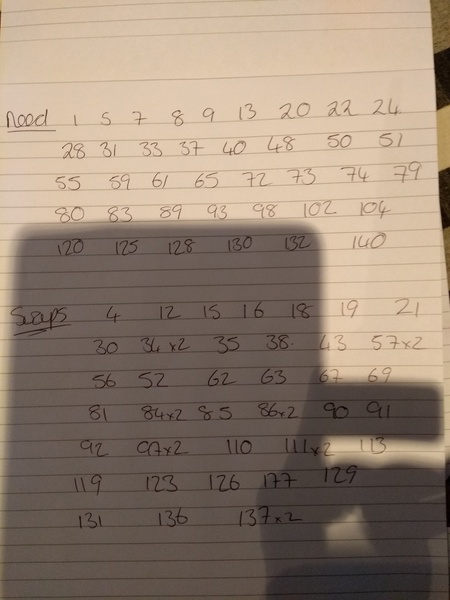 Need 1 5 7 8 9 13 20 22 24
28 31 33 37 40 48 50 51
55 59 61 65 72 73 74 79
80 83 89 93 98 102 104
120 125 128 130 132 140
Swaps 4 12 15 16 18 19 21
30 34x2 35 38 43 57x2
56 52 62 63 67 69
81 84x2 85 86x2 90 91
92 97x2 110 111x2 113
119 123 126 177 129
131 136 137x2